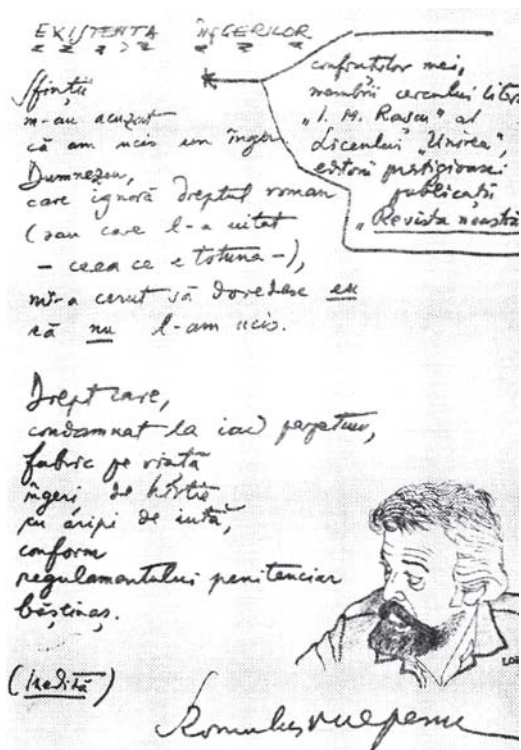 EXISTENȚA ÎNGERILOR
*
confraților mei,
membrii cercului liter
"I. M. Rașcu" al
Liceului "Unirea",
editorii prestigioasei
publicații
"Revista noastră
Sfinții
m-au acuzat
că am ucis un înger
Dumnezeu,
care ignoră dreptul roman
(sau care l-a uitat
- ceea ce e totuna -),
mi-a cerut să dovedesc eu
că nu l-am ucis.
Drept care,
condamnat la iad perpetuu,
fabric pe viață
îngeri de hîrtie
cu aripi de iută,
conform
regulamentului penitenciar
băștinaș.
(Inedită)
Romulus Vulpescu